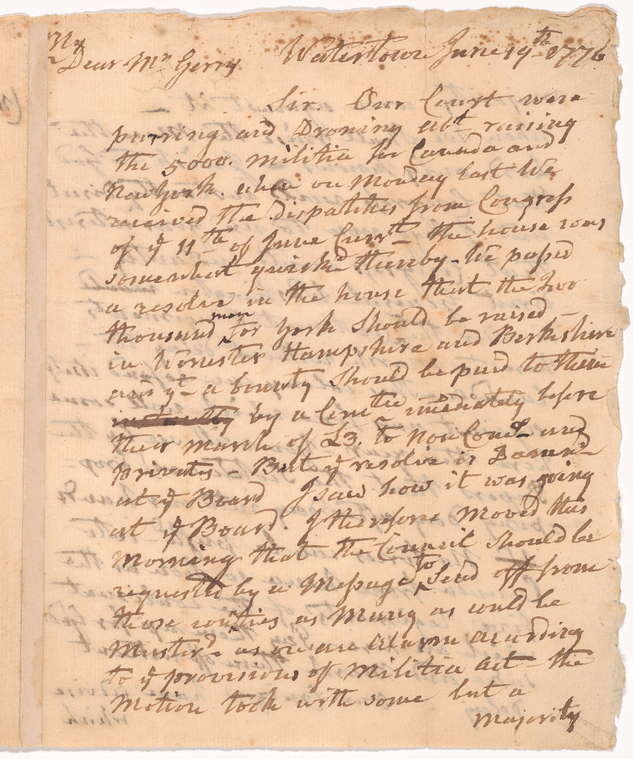 My
Dear Mr Gerry Watertown June 19th 1776
Sir. Our Court were
purring and Droning abt raising
the 5000. militia for Canada and
New York. when on Monday last We
received the Dispatches from Congress
of ye 11th of June Currt the house was
somewhat quickd thereby - We passed
a resolve in the house that the two
thousand men for York should be raised
in Worcester Hampshire and Berkshire
and yt a bounty should be paid to them
by a Comtte immediately before
their march of £3. to Non Comd and
privates - But ye resolve is
at ye Board I saw how it was going
at ye Board. I therefore moved this
morning that the Council should be
requested by a Message to send off from
those counties as many as could be
Musterd as on an Alarm according
to ye provisions of Militia act the
Motion took with some but a
Majority